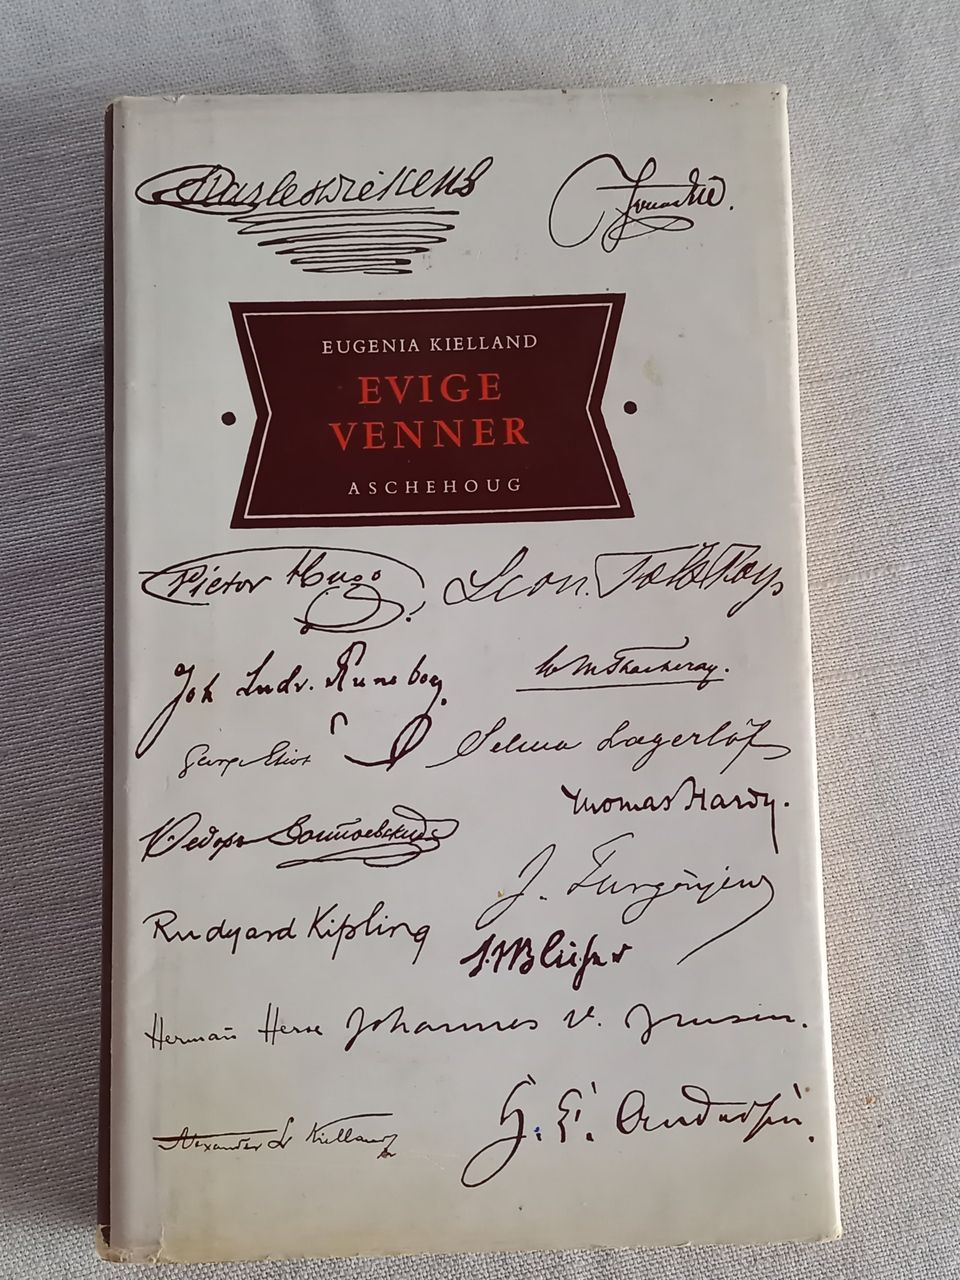 Charles Dickens
EUGENIA KIELLAND
EVIGE
VENNER
ASCHEHOUG
Victor Hugo
Léon Tolstoy
Joh Ludv. Runeberg
W M Thackeray.
George Eliot
Selma Lagerlöf
Thomas Hardy.
Ѳедоръ Достоевскій
J. Turgénjew
Rudyard Kipling
S. S. Blicher
Hermann Hesse
Johannes V. Jensen.
Alexander L. Kielland
H. C. Andersen.